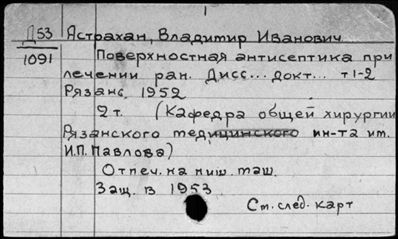 Д53 Ястрахан, Владимир Иванович
1091
Поверхностная антисептика при
лечении ран. Дисс... докт... т 1-2
Рязань. 1952
2т. (Кафедра общей хирургии
Рязанского медицинского ин-та им.
И.П. Павлова)
Отпеч. на пиш. маш.
Защ. в 1953
См. след. карт